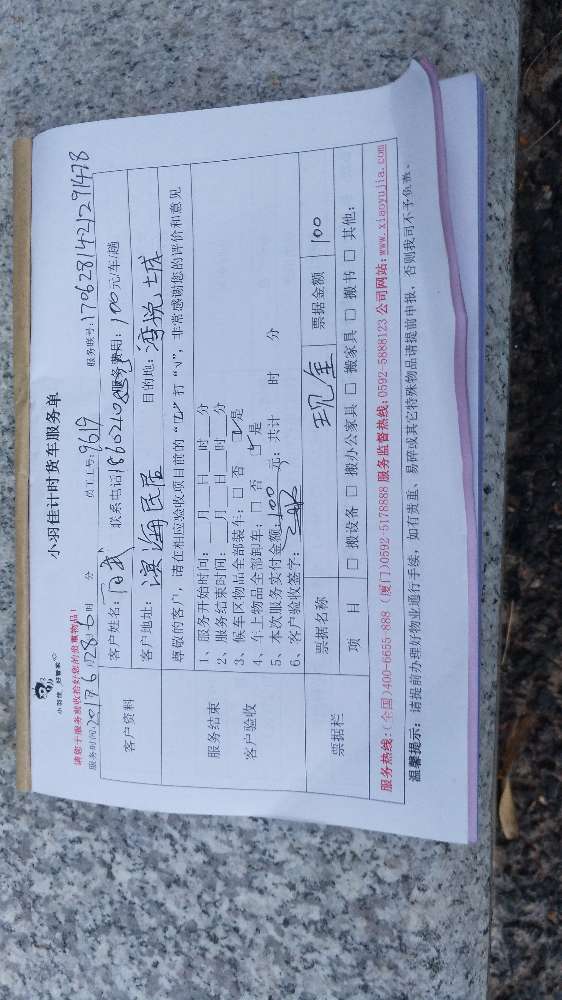 小羽佳计时货车服务单
小羽佳 好管家
请您于服务前收拾好您的贵重物品！
服务时间: 2017 6 28 15时 分 员工工号: 9619 服务账号: 1706281421291478
客户资料
客户姓名: 联系电话: 服务费用: 100元/车/趟
客户地址: 滨海民居 目的地: 湾悦城
尊敬的客户，请在相应验收项目前的“□”打“√”，非常感谢您的评价和意见
服务结束
客户验收
1、服务开始时间: 月 日 时 分
2、服务结束时间: 月 日 时 分
3、候车区物品全部装车: □ 否 ☑是
4、车上物品全部卸车: □ 否 ☑是
5、本次服务实付金额: 100 元; 共计 时 分
6、客户验收签字:
票据栏
票据名称 现金 票据金额 100
项 目 □ 搬设备 □ 搬办公家具 □ 搬家具 □ 搬书 □ 其他:
服务热线:(全国)400-6655-888 (厦门)0592-5178888 服务监督热线:0592-5888123 公司网站:www.xiaoyujia.com
温馨提示: 请提前办理好物业通行手续，如有贵重、易碎或其它特殊物品请提前申报，否则我司不予负责。